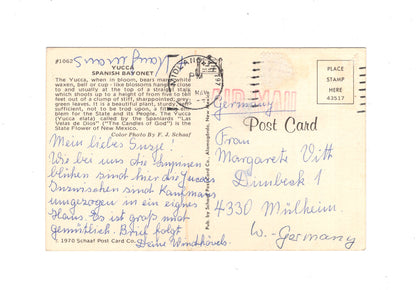 #1060
Kaufmans
YUCCA
SPANISH BAYONET
The Yucca, when in bloom, bears many white
waxen, bell or cup - like blossoms hanging
to and usually at the top of a straight stalk
which shoots up to a height of from five to ten
feet out of a clump of stiff, sharppointed, grey-
green leaves. It is a beautiful plant, sturdy,
sufficient, not to be trampled, a
blem for the State and its People. The Yucca
(Yucca elata) called by the Spaniards "Las
Velas de Dios" ("The Candles of God") is the
State Flower of New Mexico.
Color Photo By F. J. Schaaf
Mein liebes Susge!
Wie bei uns die
blühen sind hier die Yuccas
Inzwischen sind Kaufmans
umgezogen in ein eignes
Haus. Es ist groß und
gemütlich. Brief folgt
Deine Windhövels.
© 1970 Schaaf Post Card Co.
Pub. by Schaaf Post Card Co. Alamogordo, New
PM
MAY
197
AIR MAIL
Germany
PLACE
STAMP
HERE
43517
Post Card
Frau
Margarete Vitt
Dimbeck 1
4330 Mülheim.
W.-Germany